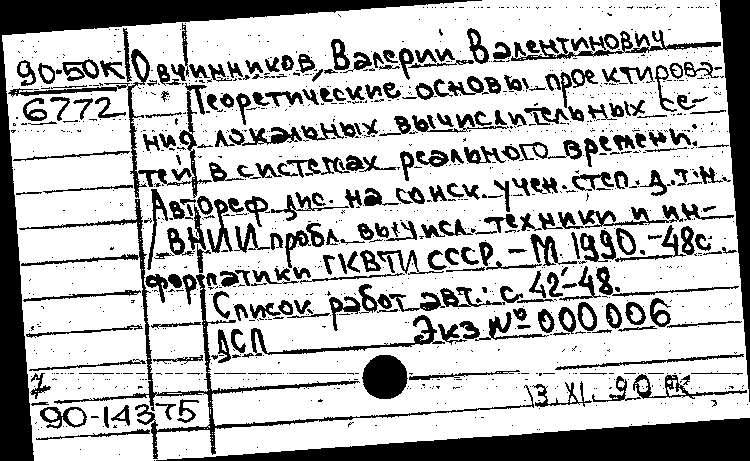 90-50К Овчинников, Валерий Валентинович
6772 Теоретические основы проектирова-
ния локальных вычислительных се-
тей в системах реального времени:
Автореф. дис. на соиск. учен. степ. д.т.н.
/ ВНИИ пробл. вычисл. техники и ин-
форматики ГКВТИ СССР. – М 1990. – 48с.
Список работ авт.: с. 42–48.
ДСП Экз № 000006
13. XI. 90
90-14375